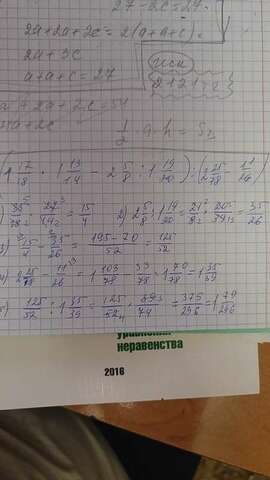 27-2c=27.
2a+2a+2c=2(a+a+c).
2a+3c
a+a+c=27
a+2a+2c=54
a+2c
1/2 a·h=S
(1 17/18 · 1 13/14 - 2 5/8 : 1 19/20) : (2 25/78 - 11/26)
1) 35/18 · 27/14 = 15/4 2) 2 5/8 : 1 19/20 = 21/8 · 20/39 = 35/26
3) 15/4 - 35/26 = 195-70/52 = 125/52
4) 2 25/78 - 11/26 = 1 103/78 - 33/78 = 1 70/78 = 1 35/39
5) 125/52 : 1 35/39 = 125/52 · 39/74 = 375/296 = 1 79/296
уравнения
неравенства
2016